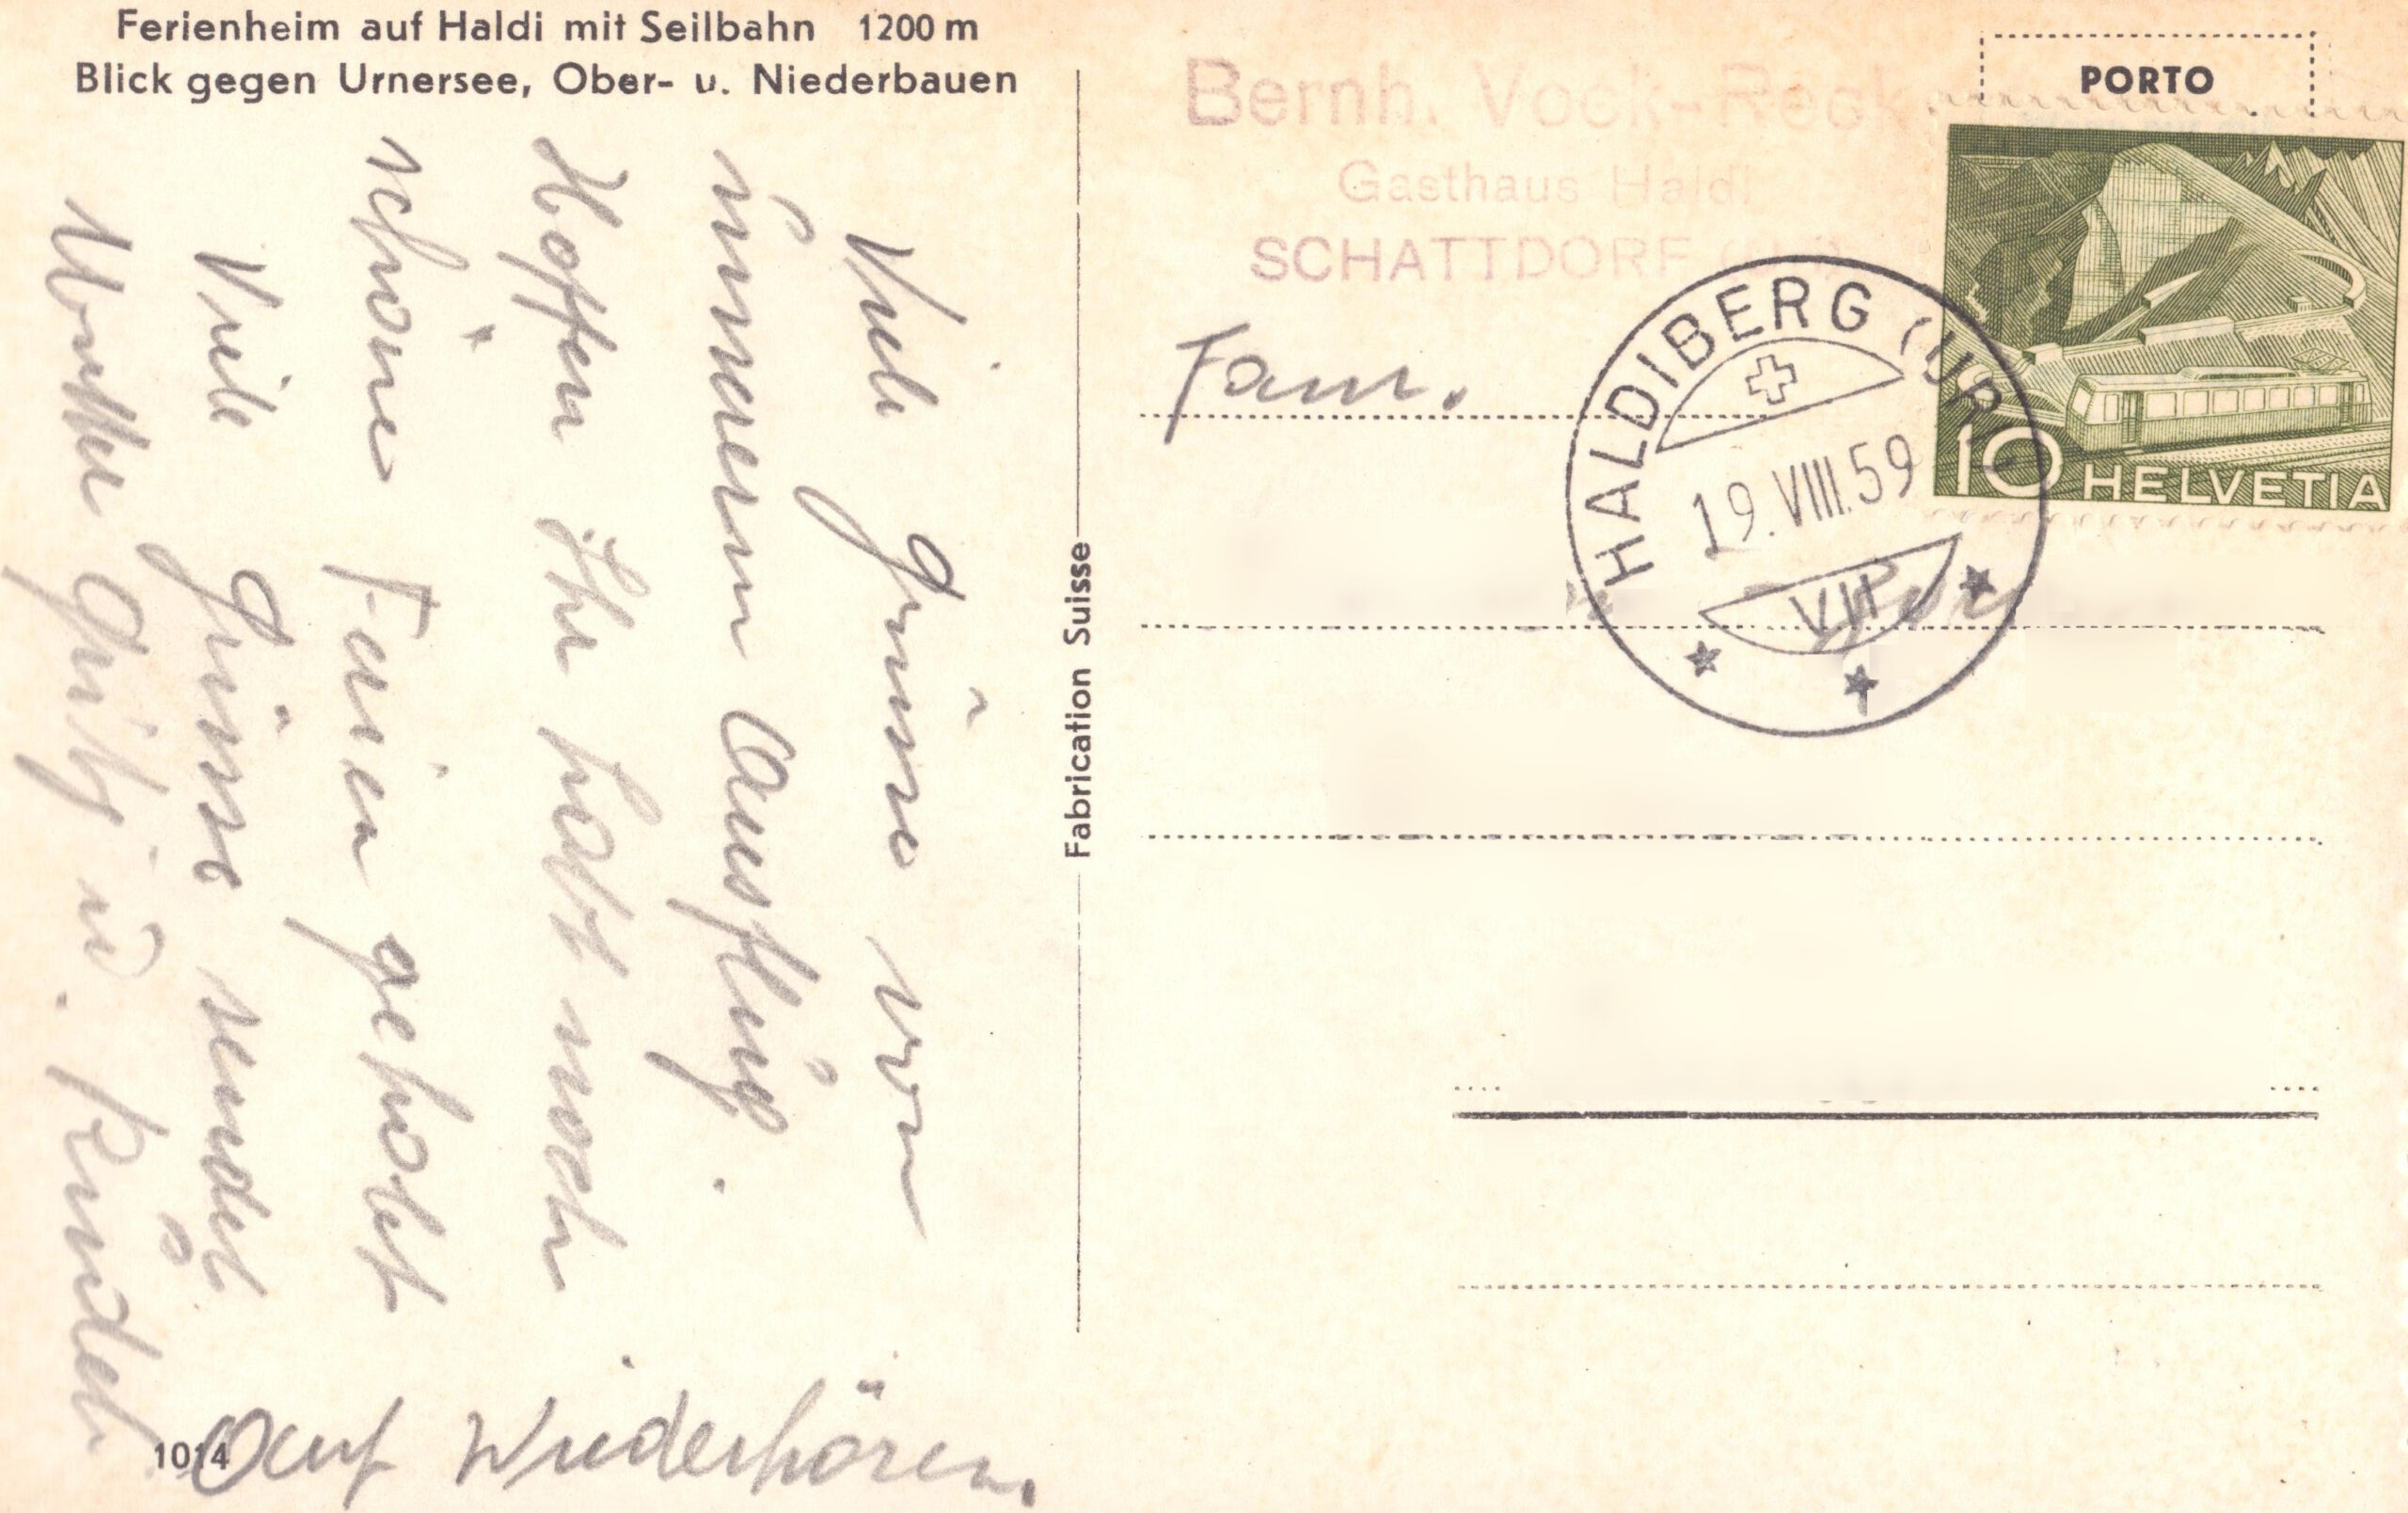 Ferienheim auf Haldi mit Seilbahn 1200 m
Blick gegen Urnersee, Ober- u. Niederbauen
Viele Grüsse von
unserem Ausflug.
Hoffen Ihr habt noch
schöne Ferien gehabt
Viele Grüsse sendet
Auf Wiederhören.
1014
Fabrication Suisse
Bernh. Vock-Reck
Gasthaus Haldi
SCHATTDORF
Fam.
PORTO
10 HELVETIA
HALDIBERG (UR)
19.VIII.59
VII